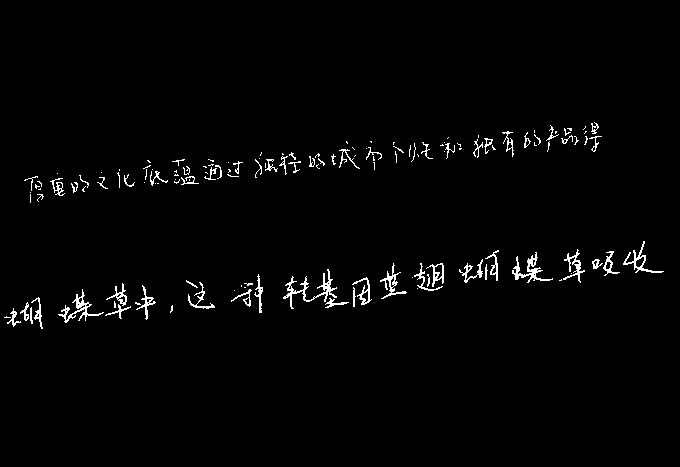 厚重的文化底蕴通过独特的城市个性和独有的产品得
蝴蝶草中，这种转基因蓝翅蝴蝶草吸收